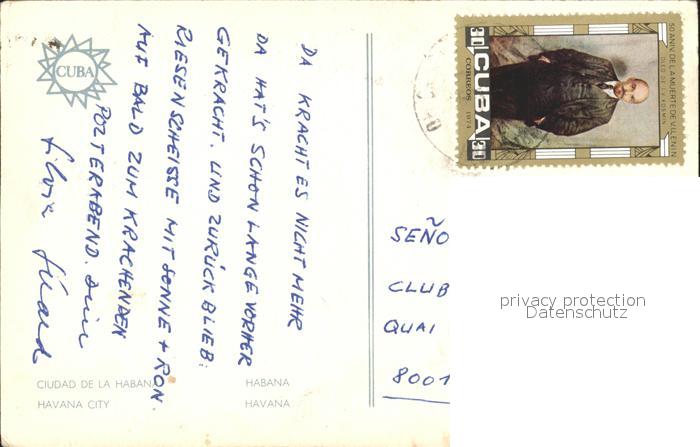 CUBA
DA KRACHT ES NICHT MEHR
DA HAT'S SCHON LANGE VORHER
GEKRACHT. UND ZURÜCK BLIEB:
RIESENSCHEISSE MIT SONNE + RON.
AUF BALD ZUM KRACHENDEN
POLTERABEND.
CIUDAD DE LA HABANA
HAVANA CITY
HABANA
HAVANA
30 CUBA 30
CORREOS 1974
50 ANIV. DE LA MUERTE DE V.I. LENIN
SEÑO
CLUB
QUAI
8001
privacy protection
Datenschutz